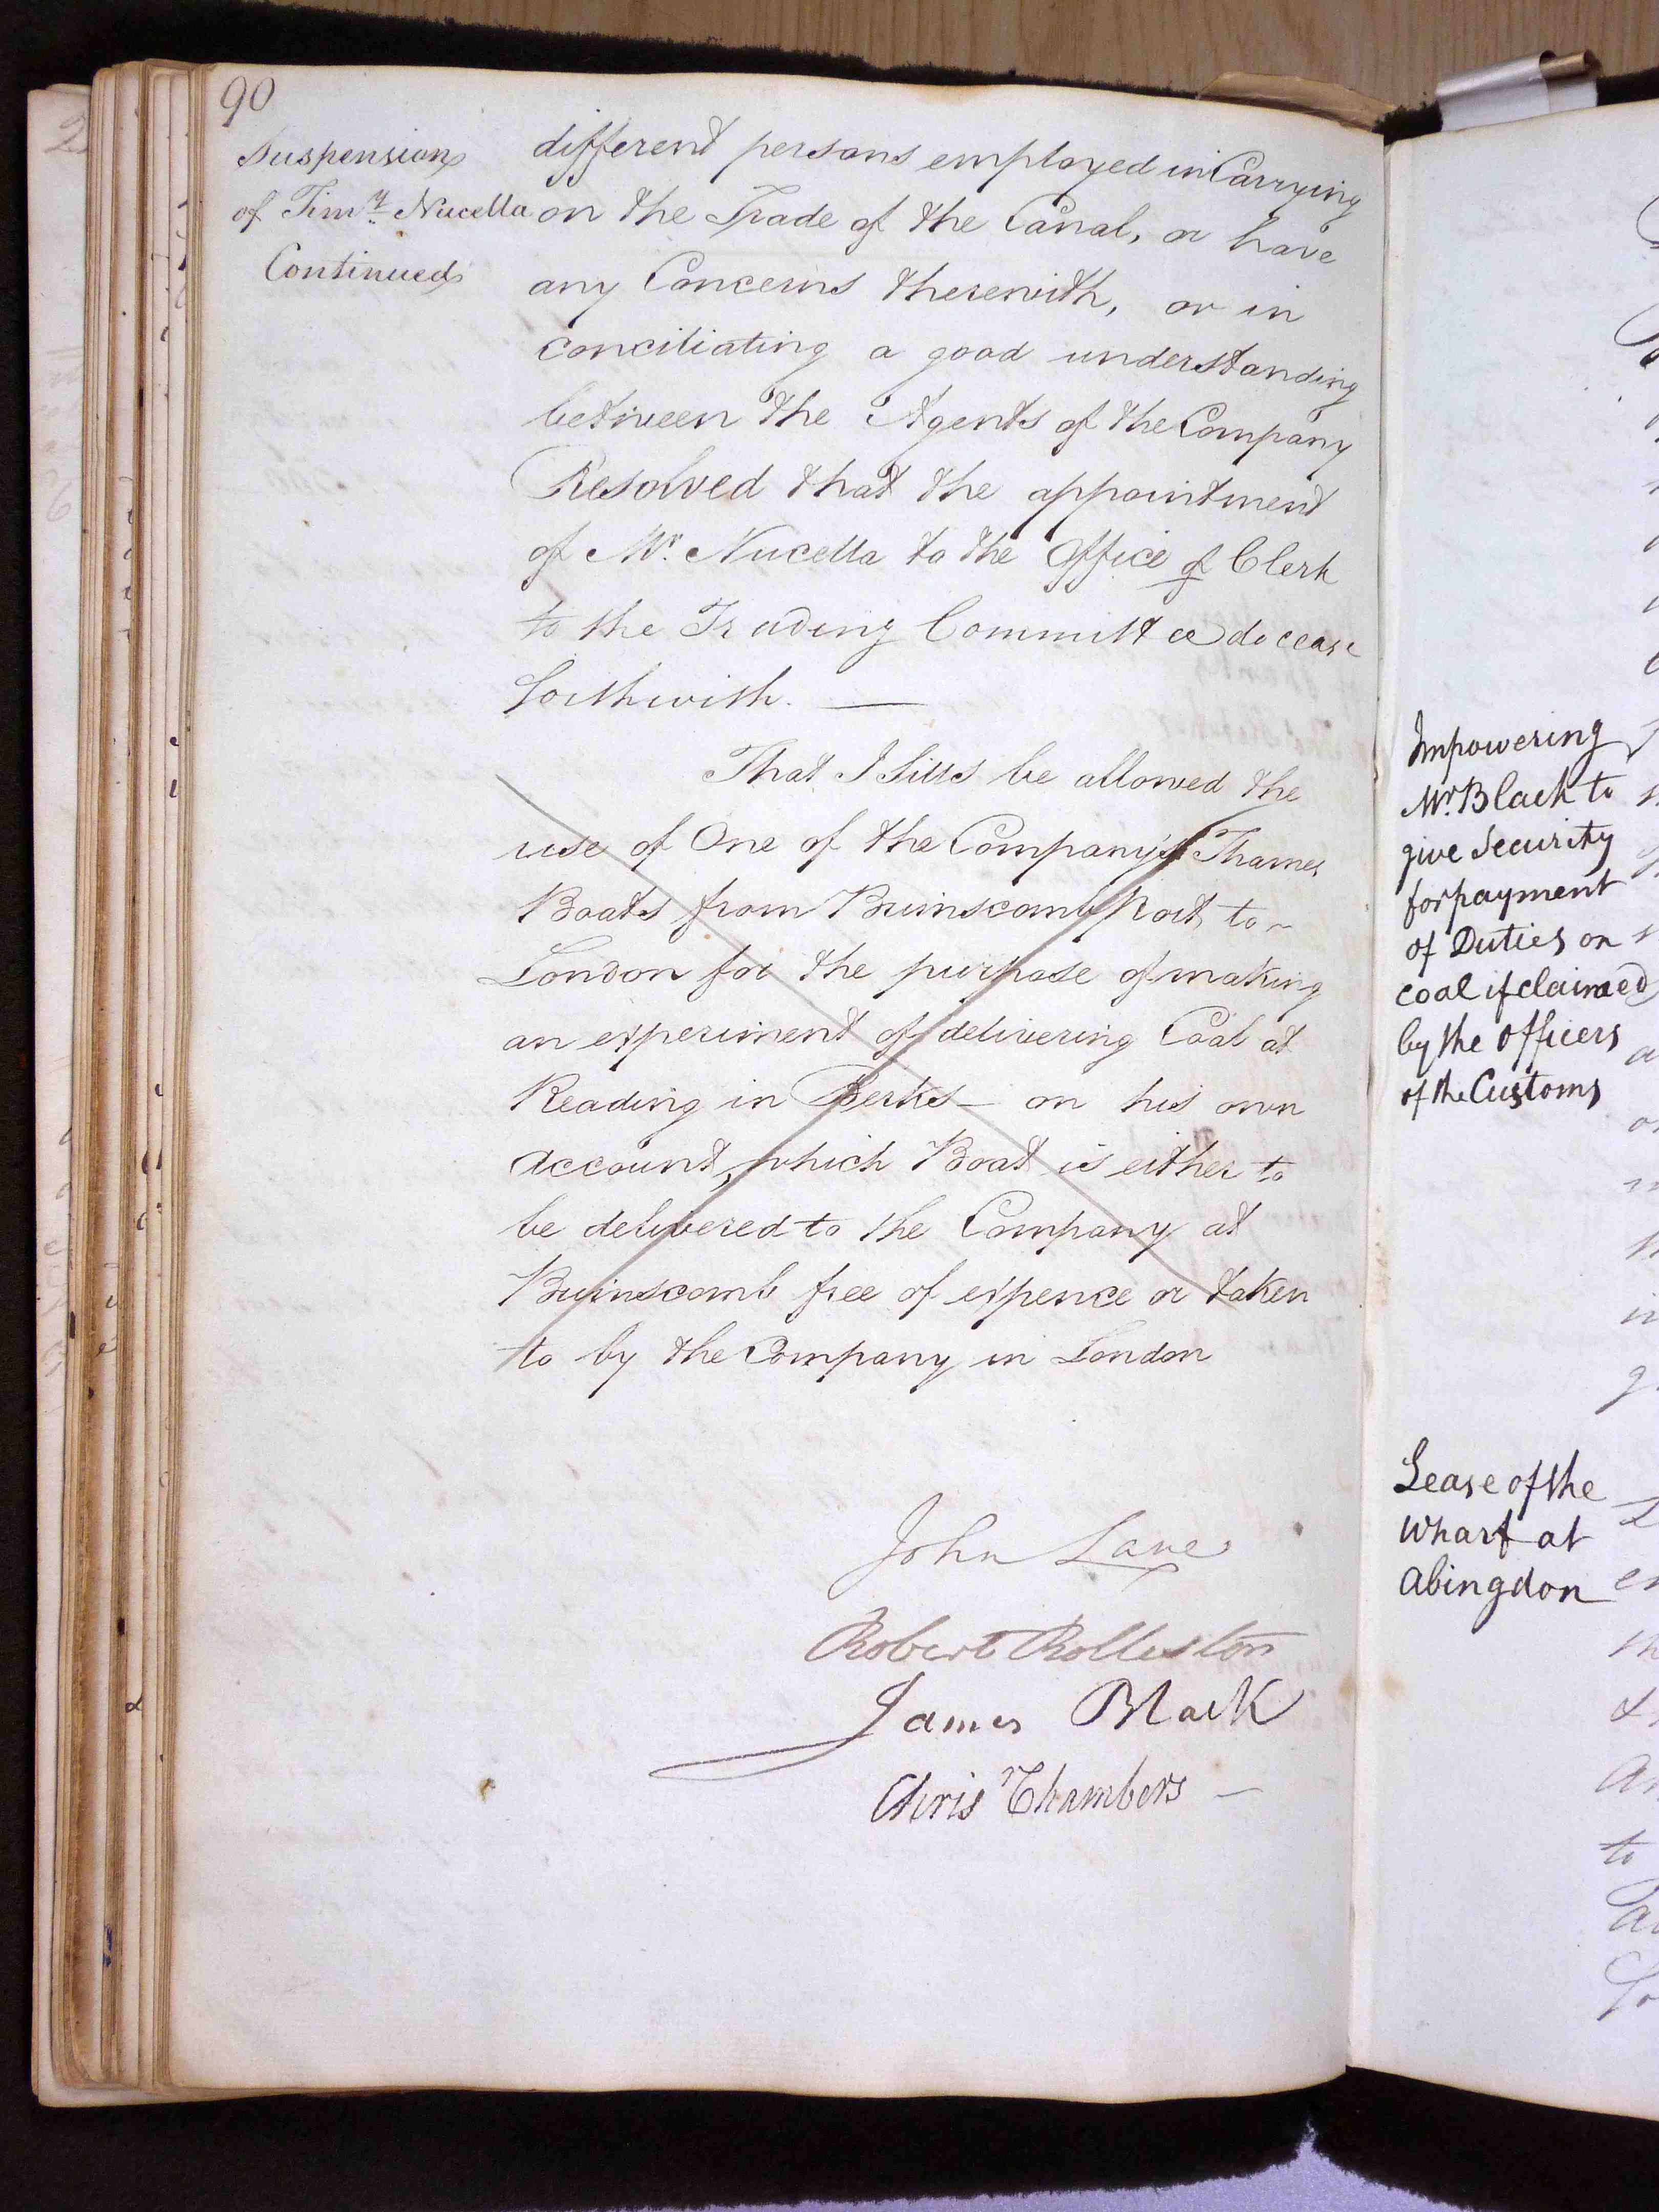 90
Suspension
of Timy. Nucella
Continued
different persons employed in Carrying
on the Trade of the Canal, or have
any Concerns therewith, or in
conciliating a good understanding
between the Agents of the Company
Resolved that the appointment
of Mr. Nucella to the Office of Clerk
to the Trading Committee do cease
forthwith. —
That J Sills be allowed the
use of One of the Company's Thames
Boats from Brimscomb Port to
London for the purpose of making
an experiment of delivering Coal at
Reading in Berks — on his own
Account, which Boat is either to
be delivered to the Company at
Brimscomb free of expence or taken
to by the Company in London
John Lane
Robert Rolleston
James Black
Chris Chambers —
Impowering
Mr. Black to
give Security
for payment
of Duties on
coal if claimed
by the Officers
of the Customs
Lease of the
Wharf at
Abingdon